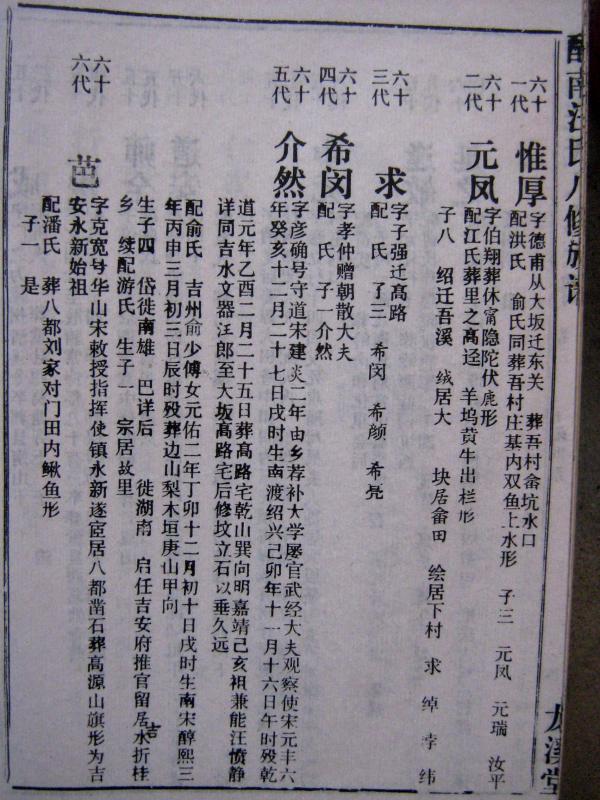 氏八修族谱
溪堂
六十一代
惟厚
字德甫从大坂迁东关 葬吾村畲坑水口
配洪氏 俞氏同葬吾村庄基内双鱼上水形 子三 元凤 元瑞 汝平
六十二代
元凤
字伯翔葬休甯隐陀伏鹿形
配江氏葬里之高迳 羊坞黄牛出栏形
子八 绍迁吾溪 绒居大 块居畲田 绘居下村 求 绰 纬
六十三代
求
字子强迁高路
配 氏 了三 希闵 希颜 希亮
六十四代
希闵
字孝仲赠朝散大夫
配 氏 子一介然
六十五代
介然
字彦确号守道宋建炎二年由乡荐补大学屡官武经大夫观察使宋元丰六
年癸亥十二月二十七日戌时生南渡绍兴己卯年十一月十六日午时殁乾
道元年乙酉二月二十五日葬高路宅乾山巽向明嘉靖己亥祖兼能汪愤静
详同吉水文器汪郎至大坂高路宅后修坟立石以垂久远
配俞氏 吉州俞少傅女元佑二年丁卯十二月初十日戌时生南宋醇熙三
年丙申三月初三日辰时殁葬边山梨木垣庚山甲向
生子四 岱徙南雄 巴详后 徙湖南 启任吉安府推官留居吉水折桂
乡 续配游氏 生子一 宗居故里
六十六代
芭
字克宽号华山宋敕授指挥使镇永新遂宦居八都凿石葬高源山旗形为吉
安永新始祖
配潘氏 葬八都刘家对门田内鳅鱼形
子一 是